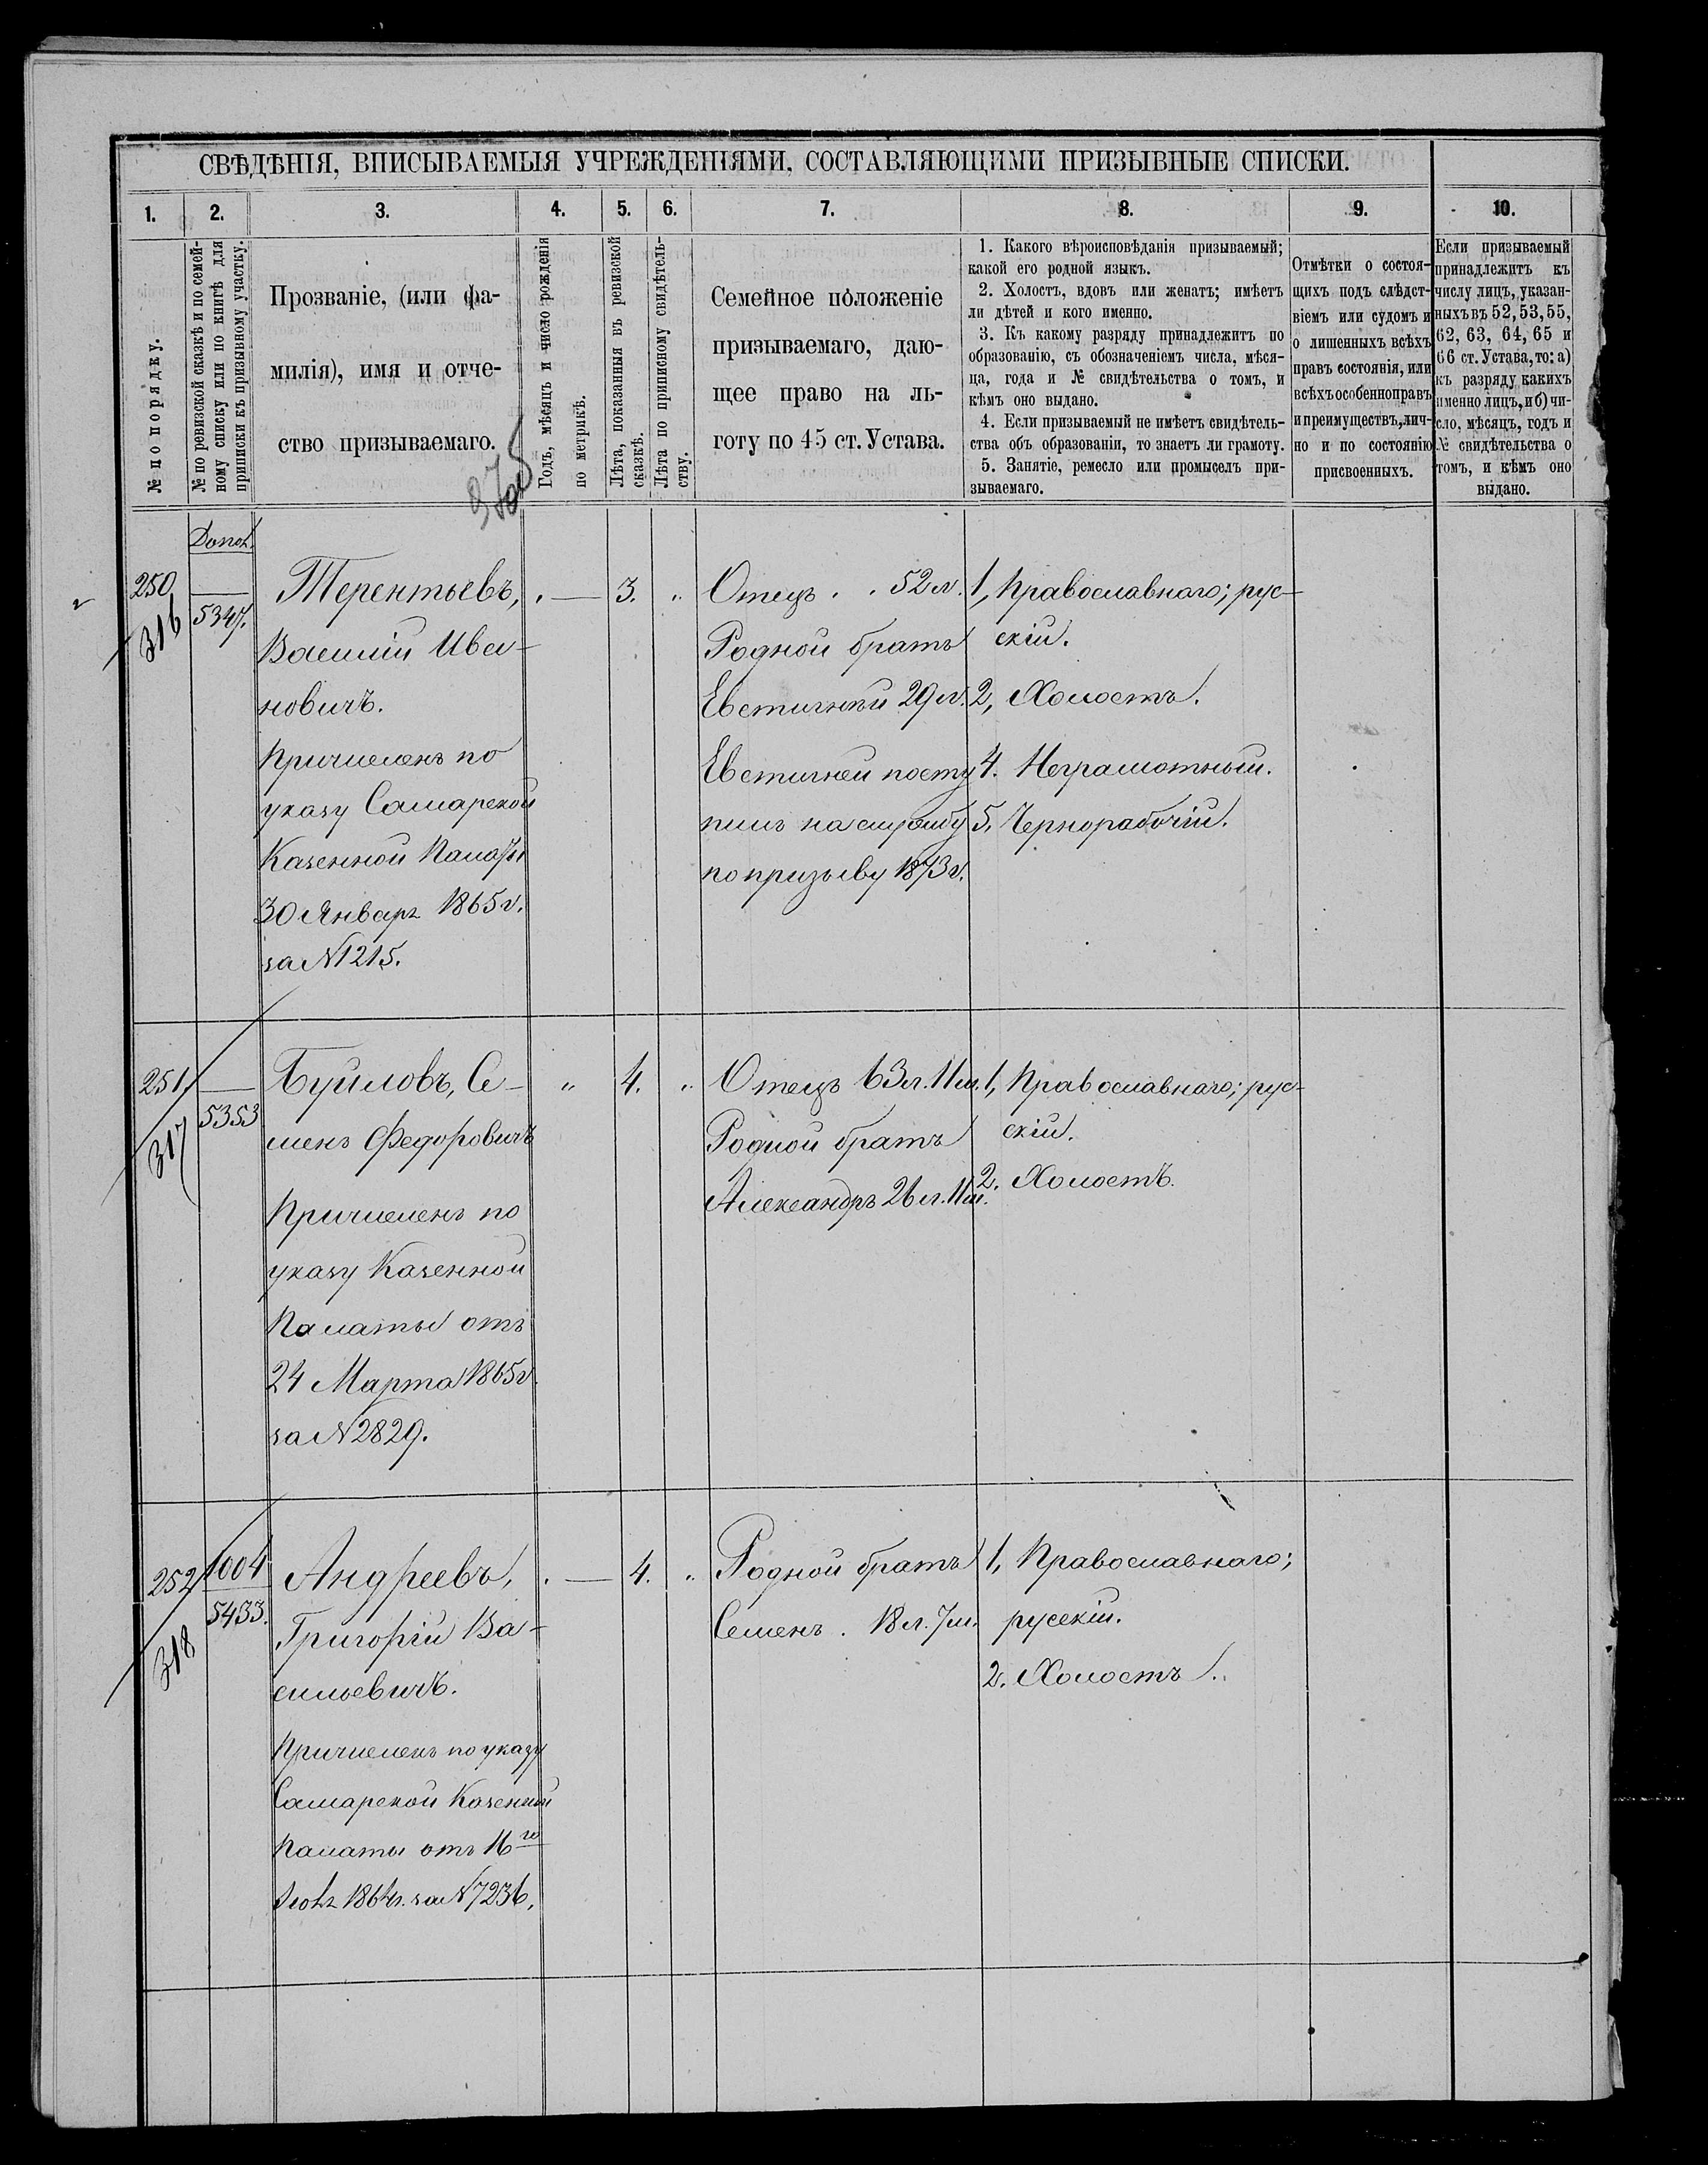 СВѢДѢНІЯ, ВПИСЫВАЕМЫЯ УЧРЕЖДЕНІЯМИ, СОСТАВЛЯЮЩИМИ ПРИЗЫВНЫЕ СПИСКИ.
1.
2.
3.
4.
5.
6.
7.
8.
9.
10.
№ по порядку.
№ по ревизской сказкѣ и по семей-
ному списку или по книгѣ для
приписки къ призывному участку.
Прозваніе, (или фа-
милія), имя и отче-
ство призываемаго.
Годъ, мѣсяцъ и число рожденія
по метрикѣ.
Лѣта, показанныя въ ревизской
сказкѣ.
Лѣта по приписному свидѣтель-
ству.
Семейное положеніе
призываемаго, даю-
щее право на ль-
готу по 45 ст. Устава.
1. Какого вѣроисповѣданія призываемый;
какой его родной языкъ.
2. Холостъ, вдовъ или женатъ; имѣетъ
ли дѣтей и кого именно.
3. Къ какому разряду принадлежитъ по
образованію, съ обозначеніемъ числа, мѣся-
ца, года и № свидѣтельства о томъ, и
кѣмъ оно выдано.
4. Если призываемый не имѣетъ свидѣтель-
ства объ образованіи, то знаетъ ли грамоту.
5. Занятіе, ремесло или промыселъ при-
зываемаго.
Отмѣтки о состоя-
щихъ подъ слѣдст-
віемъ или судомъ и
о лишенныхъ всѣхъ
правъ состоянія, или
всѣхъ особенно правъ
и преимуществъ, лич-
но и по состоянію
присвоенныхъ.
Если призываемый
принадлежитъ къ
числу лицъ, указан-
ныхъ въ 52, 53, 55,
62, 63, 64, 65 и
66 ст. Устава, то: а)
къ разряду какихъ
именно лицъ, и б) чи-
сло, мѣсяцъ, годъ и
№ свидѣтельства о
томъ, и кѣмъ оно
выдано.
250
316
5347.
Терентьевъ,
Василій Ива-
новичъ.
Причисленъ по
указу Самарской
Казенной Палаты
30 Января 1865 г.
за N 1215.
3.
Отецъ . . 52 л.
Родной братъ
Евстигнѣй 29 л.
Евстигней посту
пилъ на службу
по призыву 1873 г.
1, Православнаго; рус-
скій.
2, Холостъ.
4. Неграмотный.
5. Чернорабочій.
251
317
5353
Буйловъ, Се-
менъ Федоровичъ
Причисленъ по
указу Казенной
Палаты отъ
24 Марта 1865 г.
за N 2829.
" 4. "
Отецъ 63 л. 11 м.
Родной братъ
Александръ 26 л. 11 м.
1, Православнаго; рус-
скій.
2. Холостъ.
252
318
1004
5433.
Андреевъ,
Григорій Ва-
сильевичъ.
Причисленъ по указу
Самарской Казенной
Палаты отъ 16го
1864 г. за N 7236.
4.
Родной братъ
Семенъ . 18 л. 7 м.
1, Православнаго;
русскій.
2. Холостъ.